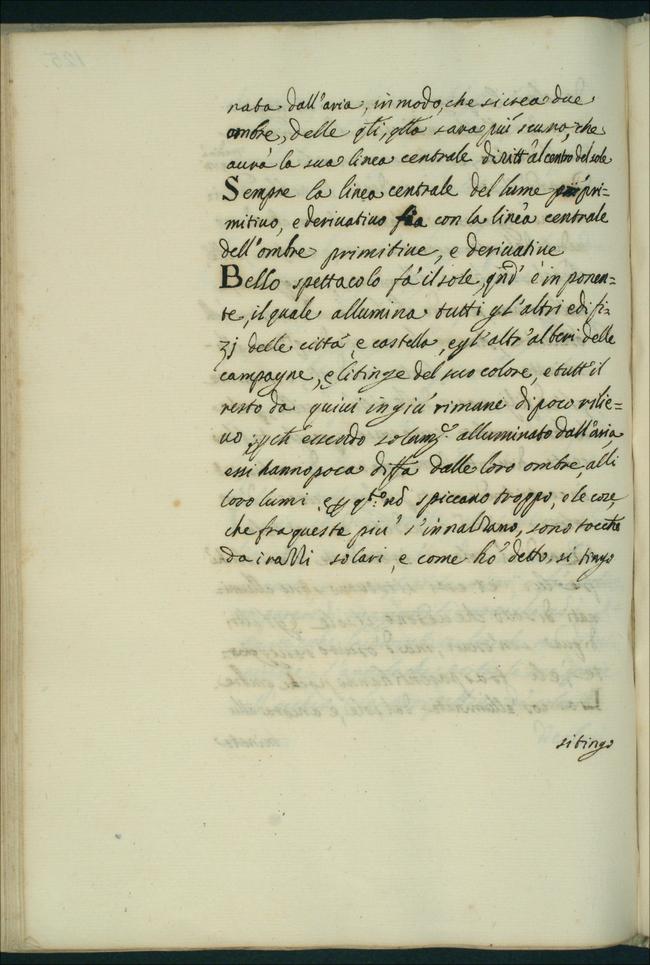 nata dall'aria, in modo, che si crea due
ombre, delle qti, qlla sara più scura, che
aurà la sua linea centrale diritt'al centro del sole
Sempre la linea centrale del lume pri-
mitiuo, e deriuatiuo sia con la linea centrale
dell'ombre primitiue, e deriuatiue
Bello spettacolo fà il sole, qnd' è in ponen=
te, il quale allumina tutti gl'altri edifi-
zj delle città, e castella, e gl'altr'alberi delle
campagne, e li tinge del suo colore, e tutt'il
resto da quiui in giù rimane di poco rilie=
uo, essendo solam.e alluminato dall'aria,
essi hanno poca diffa dalle loro ombre, alli
loro lumi, e nō spiccano troppo, e le cose,
che fra queste più s'innalzano, sono tocche
da i razzi solari, e come hò detto, si tingo
si tingo